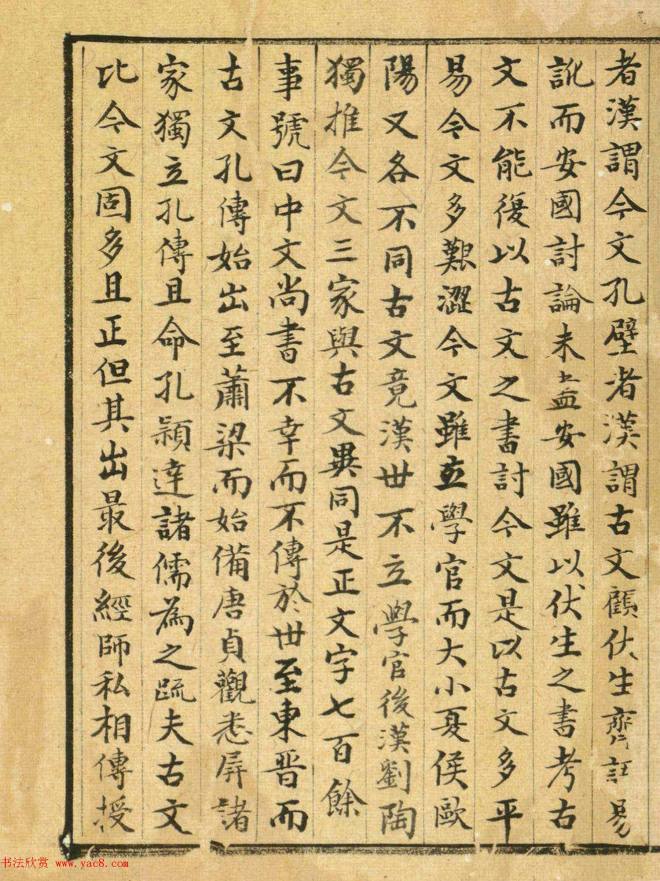 者漢謂今文孔壁者漢謂古文顧伏生齊語易
訛而安國討論未盡安國雖以伏生之書考古
文不能復以古文之書討今文是以古文多平
易今文多艱澀今文雖立學官而大小夏侯歐
陽又各不同古文竟漢世不立學官後漢劉陶
獨推今文三家與古文異同是正文字七百餘
事號曰中文尚書不幸而不傳於世至東晉而
古文孔傳始出至蕭梁而始備唐貞觀悉屏諸
家獨立孔傳且命孔穎達諸儒為之疏夫古文
比今文固多且正但其出最後經師私相傳授
书法欣赏 www.yac8.com